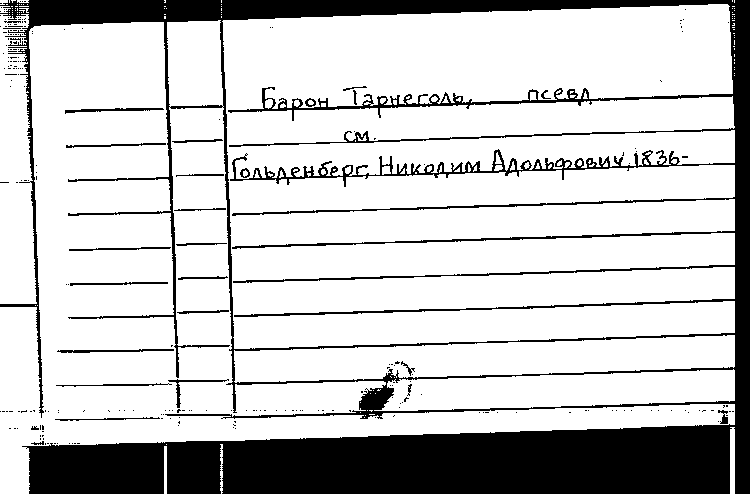 Барон Тарнеголь, псевд
см.
Гольденберг, Никодим Адольфович, 1836-